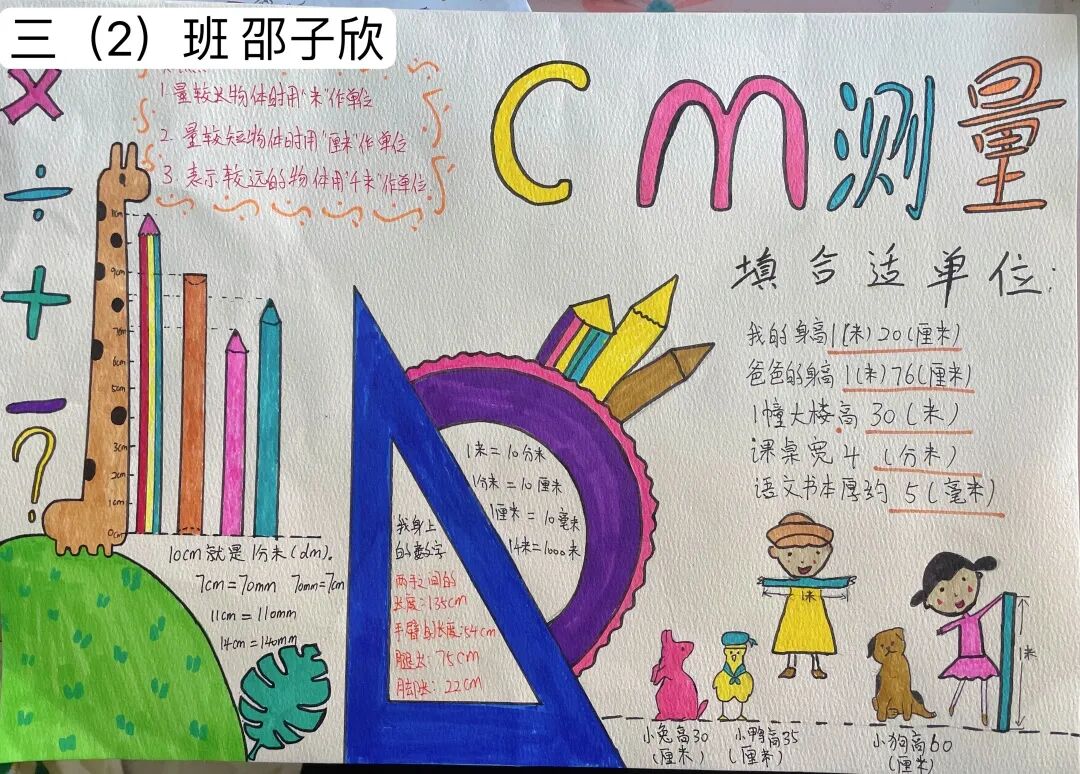 三（2）班 邵子欣
1. 量较长物体时用"米"作单位
2. 量较短物体时用"厘米"作单位
3. 表示较远的物体用"千米"作单位
cm测量
填合适单位:
我的身高1(米)20(厘米)
爸爸的身高1(米)76(厘米)
1幢大楼高30(米)
课桌宽4(分米)
语文书本厚约5(毫米)
9cm
6cm
5cm
3cm
2cm
1cm
0cm
10cm就是1分米(dm).
7cm=70mm 70mm=7cm
11cm=110mm
14cm=140mm
1米=10分米
1分米=10厘米
1厘米=10毫米
1千米=1000米
我身上
的数字
两手之间的
长度:135cm
手臂的长度:54cm
腿长:75cm
脚长:22cm
1米
1米
小兔高30
(厘米)
小鸭高35
(厘米)
小狗高60
(厘米)